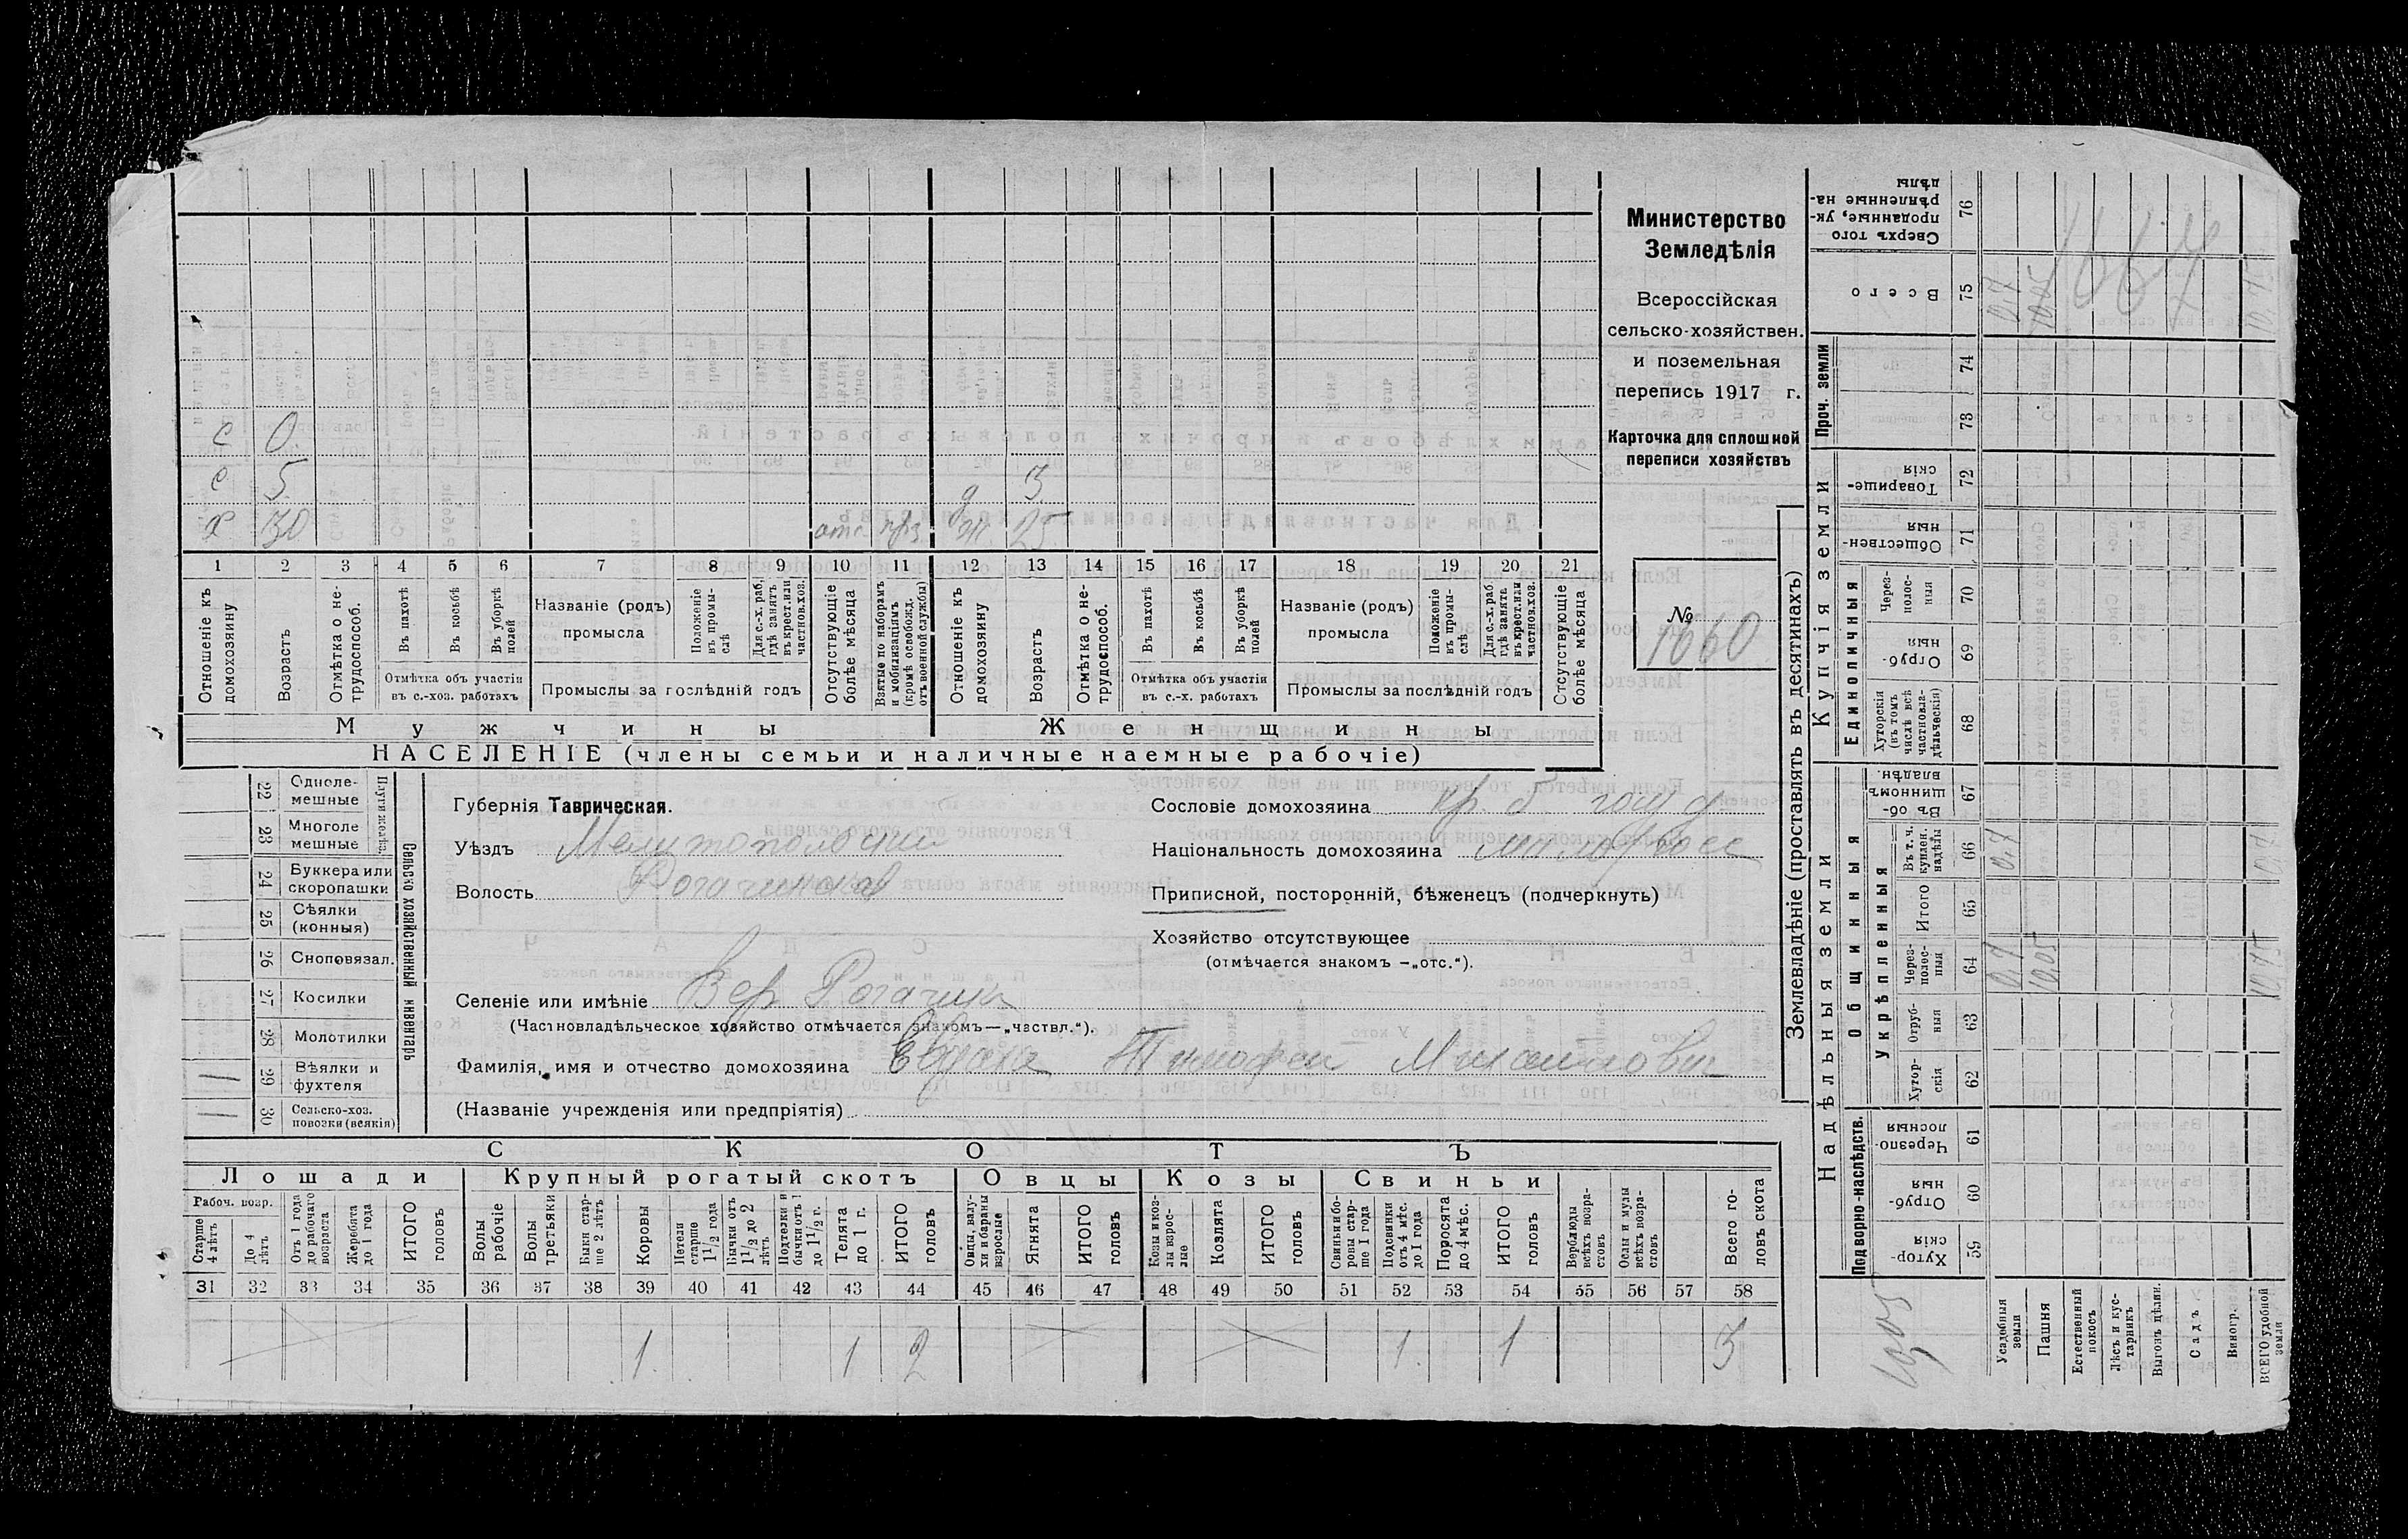 Министерство
Земледѣлія
Всероссійская
сельско-хозяйствен.
и поземельная
перепись 1917 г.
Карточка для сплошной
переписи хозяйствъ
№
1660
с 0
с 5 д 3
х 30 отс ж 25
1 2 3 4 5 6 7 8 9 10 11 12 13 14 15 16 17 18 19 20 21
Отношеніе къ домохозяину
Возрастъ
Отмѣтка о не-трудоспособ.
Въ пахотѣ
Въ косьбѣ
Въ уборкѣ полей
Отмѣтка объ участіи въ с.-хоз. работахъ
Названіе (родъ) промысла
Положеніе въ промы-слѣ
Для с.-х. раб. гдѣ занятъ въ крест. или частновл. хоз.
Промыслы за послѣдній годъ
Отсутствующіе болѣе мѣсяца
Взятые по наборамъ и мобилизаціямъ (кромѣ освобожд. отъ военной службы)
Отношеніе къ домохозяину
Возрастъ
Отмѣтка о не-трудоспособ.
Въ пахотѣ
Въ косьбѣ
Въ уборкѣ полей
Отмѣтка объ участіи въ с.-х. работахъ
Названіе (родъ) промысла
Положеніе въ промы-слѣ
Для с.-х. раб. гдѣ занята въ крест. или частновл. хоз.
Промыслы за послѣдній годъ
Отсутствующіе болѣе мѣсяца
Мужчины Женщины
НАСЕЛЕНІЕ (члены семьи и наличные наемные рабочіе)
Сельско хозяйственный инвентарь
22 Одноле-мешные
23 Многоле мешные
24 Буккера или скоропашки
25 Сѣялки (конныя)
26 Сноповязал.
27 Косилки
28 Молотилки
29 Вѣялки и фухтеля 1
30 Сельско-хоз. повозки (всякія) 1
Губернія Таврическая.
Уѣздъ Мелитопольскій
Волость Рогачикская
Селеніе или имѣніе Вер Рогачик
(Частновладѣльческое хозяйство отмѣчается знакомъ—„частвл.“).
Фамилія, имя и отчество домохозяина Тимофей Михайлович
(Названіе учрежденія или предпріятія)
Сословіе домохозяина кр. б
Національность домохозяина малоросс
Приписной, посторонній, бѣженецъ (подчеркнуть)
Хозяйство отсутствующее
(отмѣчается знакомъ —„отс.“).
СКОТЪ
Лошади Крупный рогатый скотъ Овцы Козы Свиньи
Рабоч. возр.
Старше 4 лѣтъ
До 4 лѣтъ
Отъ 1 года до рабочаго возраста
Жеребята до 1 года
ИТОГО головъ
Волы рабочіе
Волы третьяки
Быки стар-ше 2 лѣтъ
Коровы
Нетели старше 1 1/2 года
Бычки отъ 1 1/2 до 2 лѣтъ
Подтелки и бычки отъ 1 до 1 1/2 г.
Телята до 1 г.
ИТОГО головъ
Овцы, валу-хи и бараны взрослые
Ягнята
ИТОГО головъ
Козы и коз-лы взрос-лые
Козлята
ИТОГО головъ
Свиньи и бо-ровы стар-ше 1 года
Подсвинки отъ 4 мѣс. до 1 года
Поросята до 4 мѣс.
ИТОГО головъ
Верблюды всѣхъ возра-стовъ
Ослы и мулы всѣхъ возра-стовъ
Всего го-ловъ скота
31 32 33 34 35 36 37 38 39 40 41 42 43 44 45 46 47 48 49 50 51 52 53 54 55 56 57 58
1 1 2 1 1 3
Землевладѣніе (проставлять въ десятинахъ)
Надѣльныя земли
Купчія земли
Проч. земли
Подворно-наслѣдств.
Общинныя
Укрѣпленныя
Единоличныя
59 Хутор-скія
60 Отруб-ныя
61 Черезпо-лосныя
62 Хутор-скія
63 Отруб-ныя
64 Через-полос-ныя 0,7 10.05 10.75
65 Итого
66 Въ т. ч. куплен. надѣлы 0.7 0.7
67 Въ об-щинномъ владѣн.
68 Хуторскія (въ томъ числѣ всѣ частновла-дѣльческія)
69 Отруб-ныя
70 Через-полос-ныя
71 Обществен-ныя
72 Товарище-скія
73
74
75 Всего 0,7 10.05 10.75
76 Сверхъ того проданные, ук-рѣпленные на-дѣлы
Усадебная земля
Пашня
Естественный покосъ
Лѣсъ и кус-тарникъ
Выгонъ цѣлин.
Садъ
Виногр.
ВСЕГО удобной земли